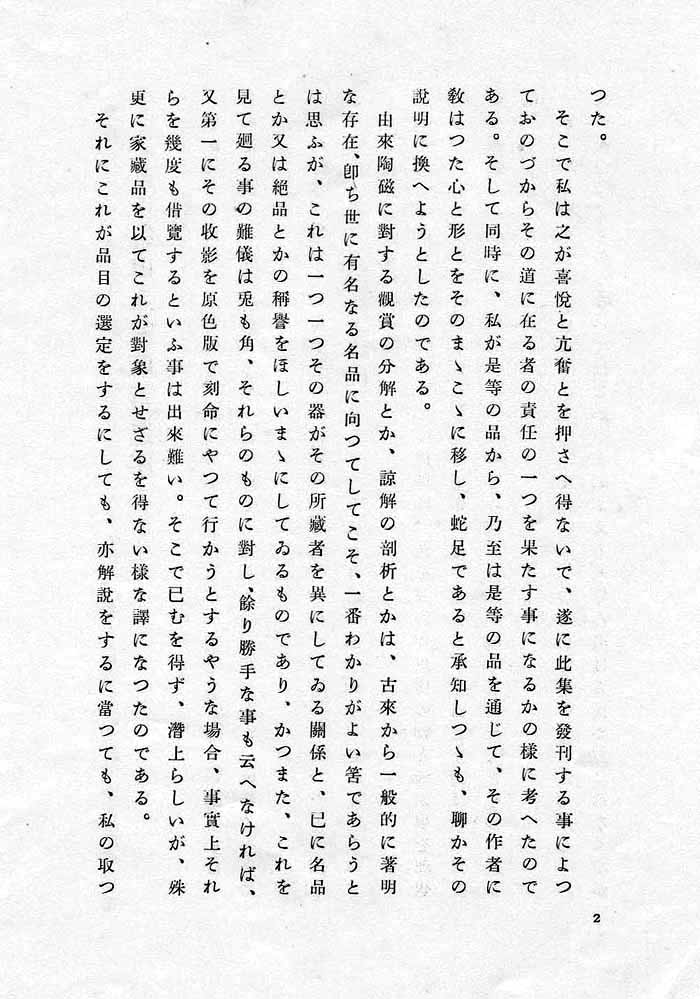 つた。
そこで私は之が喜悅と亢奮とを押さへ得ないで、遂に此集を發刊する事によつ
ておのづからその道に在る者の責任の一つを果たす事になるかの樣に考へたので
ある。そして同時に、私が是等の品から、乃至は是等の品を通じて、その作者に
敎はつた心と形とをそのまゝこゝに移し、蛇足であると承知しつゝも、聊かその
說明に換へようとしたのである。
由來陶磁に對する觀賞の分解とか、諒解の剖析とかは、古來から一般的に著明
な存在、卽ち世に有名なる名品に向つてしてこそ、一番わかりがよい筈であらうと
は思ふが、これは一つ一つその器がその所藏者を異にしてゐる關係と、已に名品
とか又は絕品とかの稱譽をほしいまゝにしてゐるものであり、かつまた、これを
見て廻る事の難儀は兎も角、それらのものに對し、餘り勝手な事も云へなければ、
又第一にその收影を原色版で刻命にやつて行かうとするやうな場合、事實上それ
らを幾度も借覽するといふ事は出來難い。そこで已むを得ず、潛上らしいが、殊
更に家藏品を以てこれが對象とせざるを得ない樣な譯になつたのである。
それにこれが品目の選定をするにしても、亦解說をするに當つても、私の取つ
2